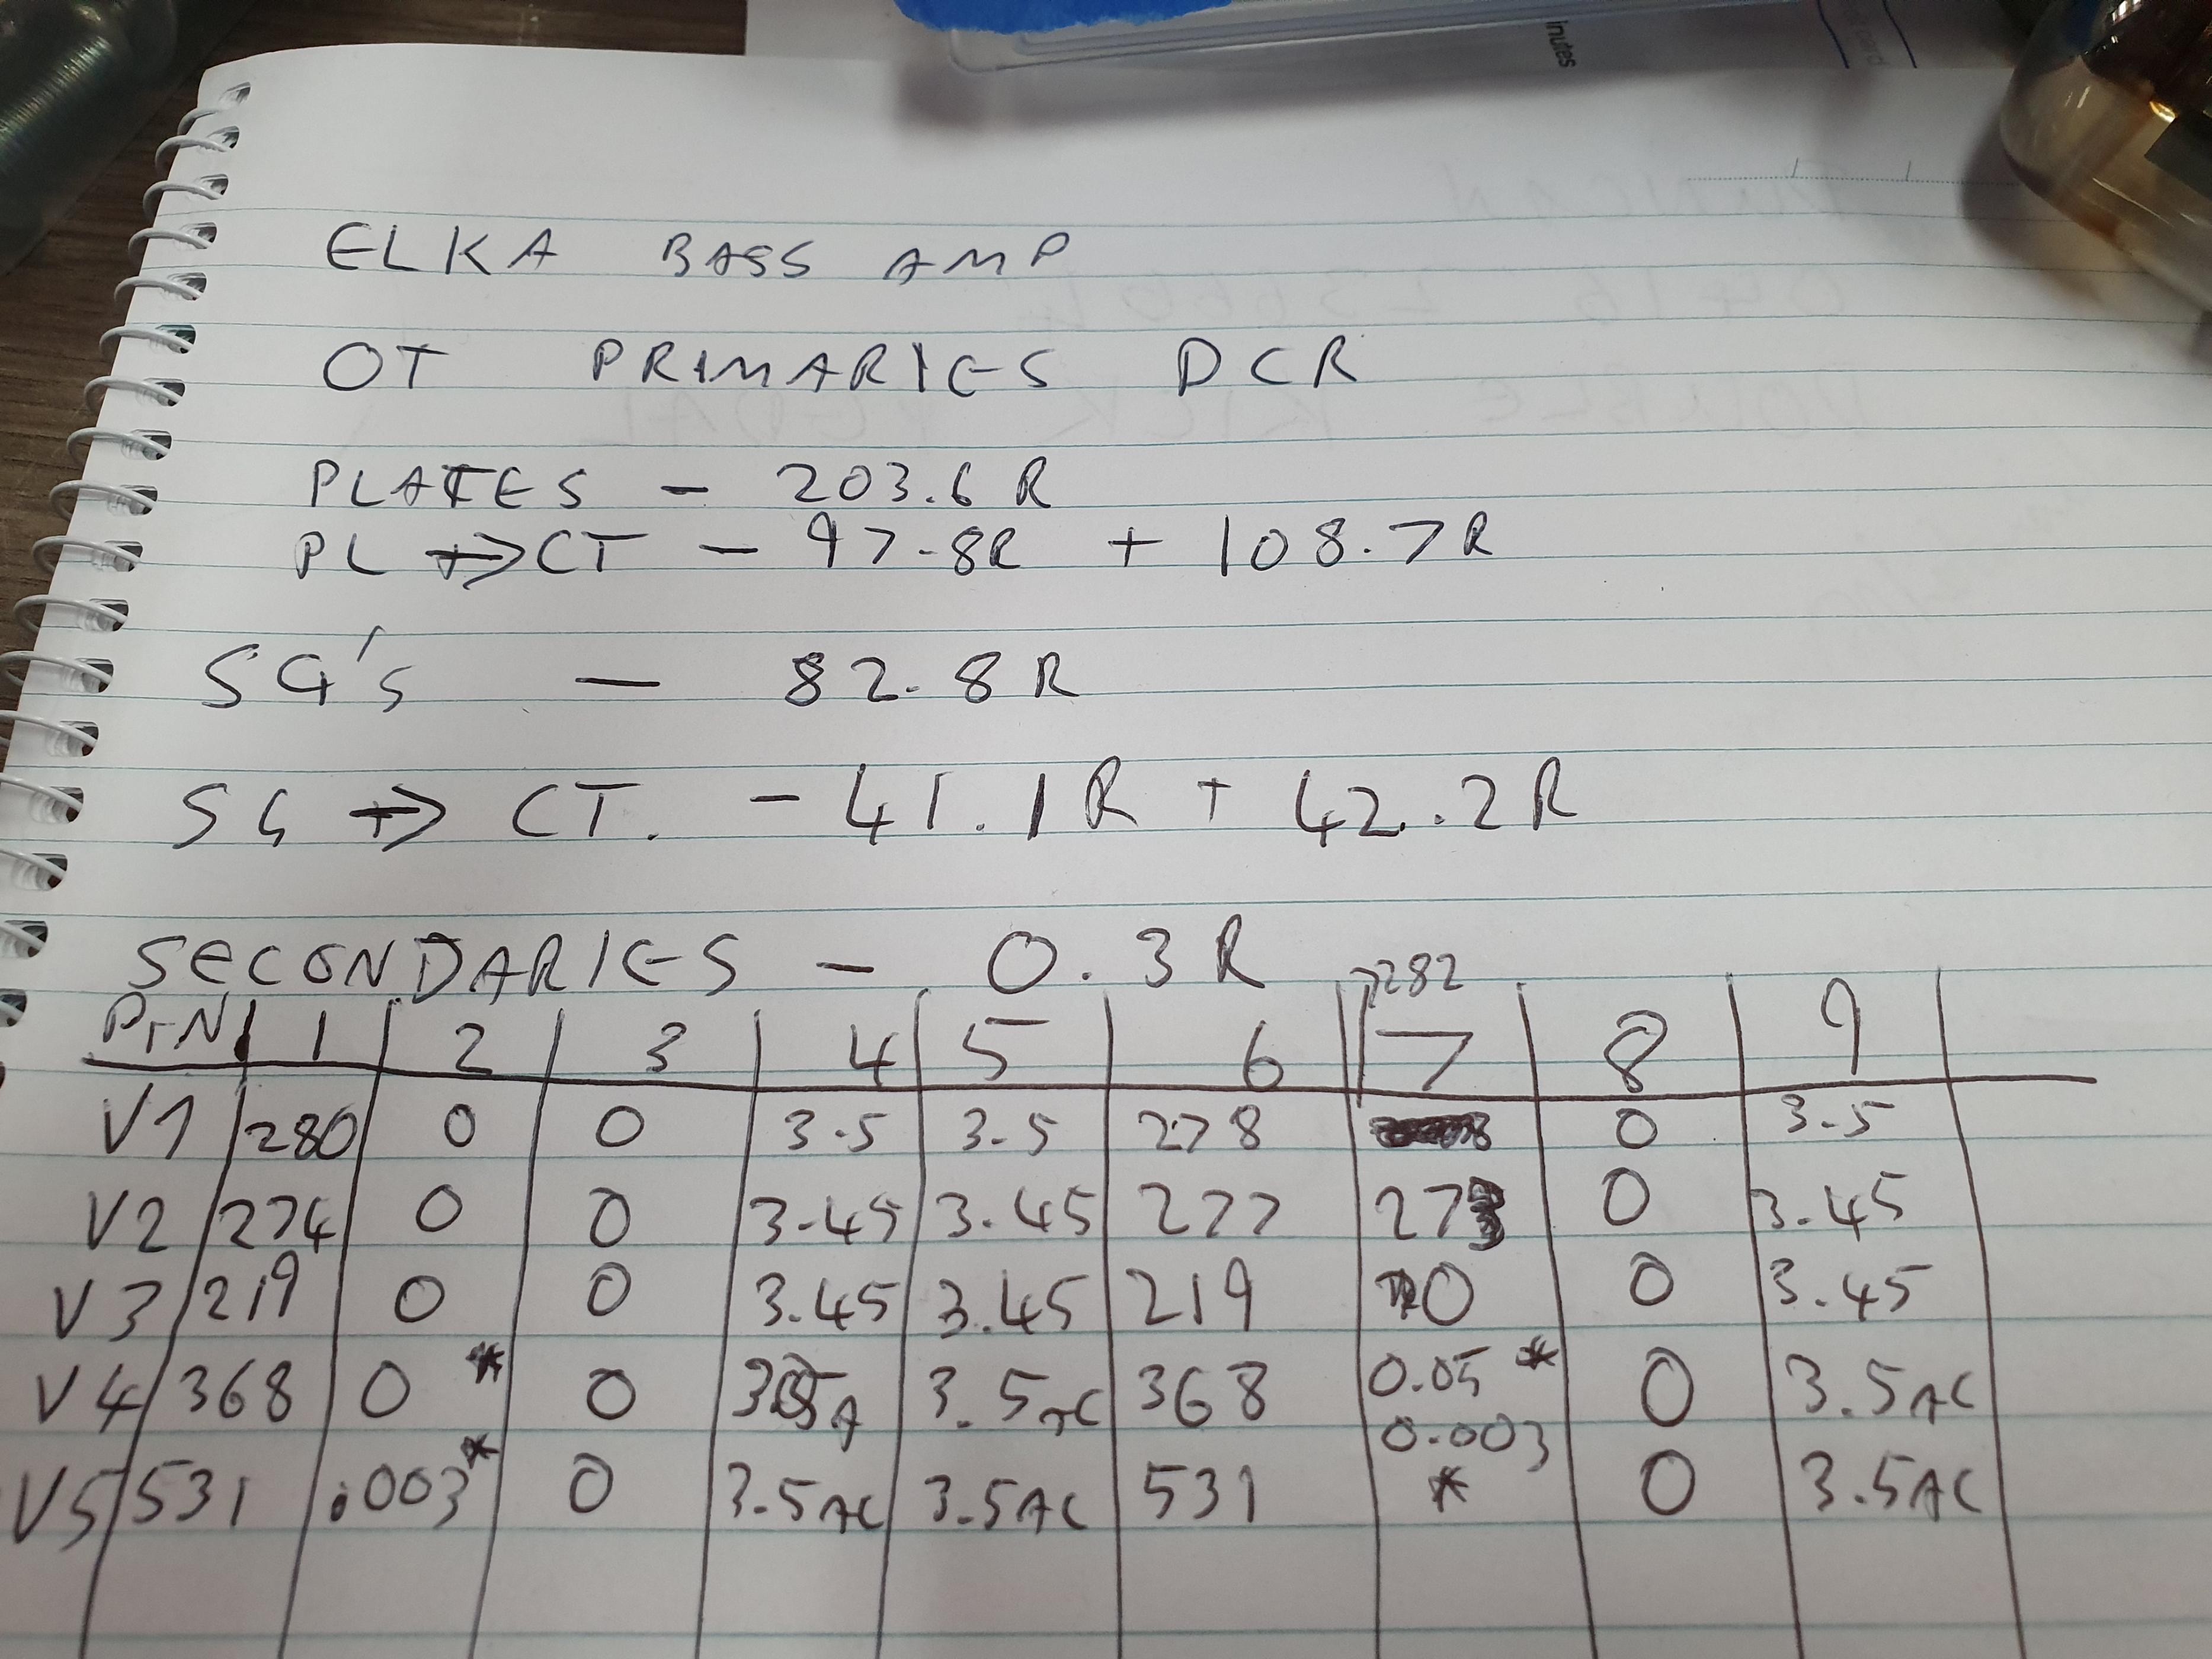 inutes
ELKA BASS AMP
OT PRIMARIES DCR
PLATES - 203.6 R
PL → CT - 97.8R + 108.7R
SG's - 82.8 R
SG → CT. - 41.1R + 42.2R
SECONDARIES - 0.3R
282
PIN 1 2 3 4 5 6 7 8 9
V1 280 0 0 3.5 3.5 278 0 3.5
V2 274 0 0 3.45 3.45 277 273 0 3.45
V3 219 0 0 3.45 3.45 219 0 0 3.45
V4 368 0 * 0 3.5 AC 368 0.05 * 0 3.5 AC
V5 531 .003 * 0 3.5 AC 3.5 AC 531 0.003 * 0 3.5 AC